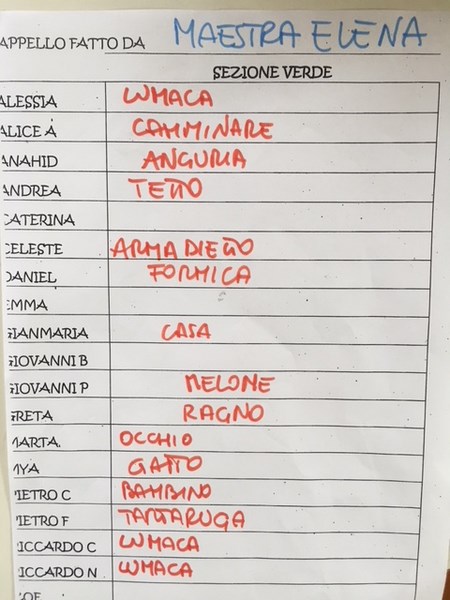 APPELLO FATTO DA MAESTRA ELENA
SEZIONE VERDE
ALESSIA LUMACA
ALICE A CAMMINARE
ANAHID ANGURIA
ANDREA TETTO
CATERINA
CELESTE ARMADIETTO
DANIEL FORMICA
EMMA
GIANMARIA CASA
GIOVANNI B
GIOVANNI P MELONE
GRETA RAGNO
MARTA. OCCHIO
MYA GATTO
PIETRO C BAMBINO
PIETRO F TARTARUGA
RICCARDO C LUMACA
RICCARDO N LUMACA